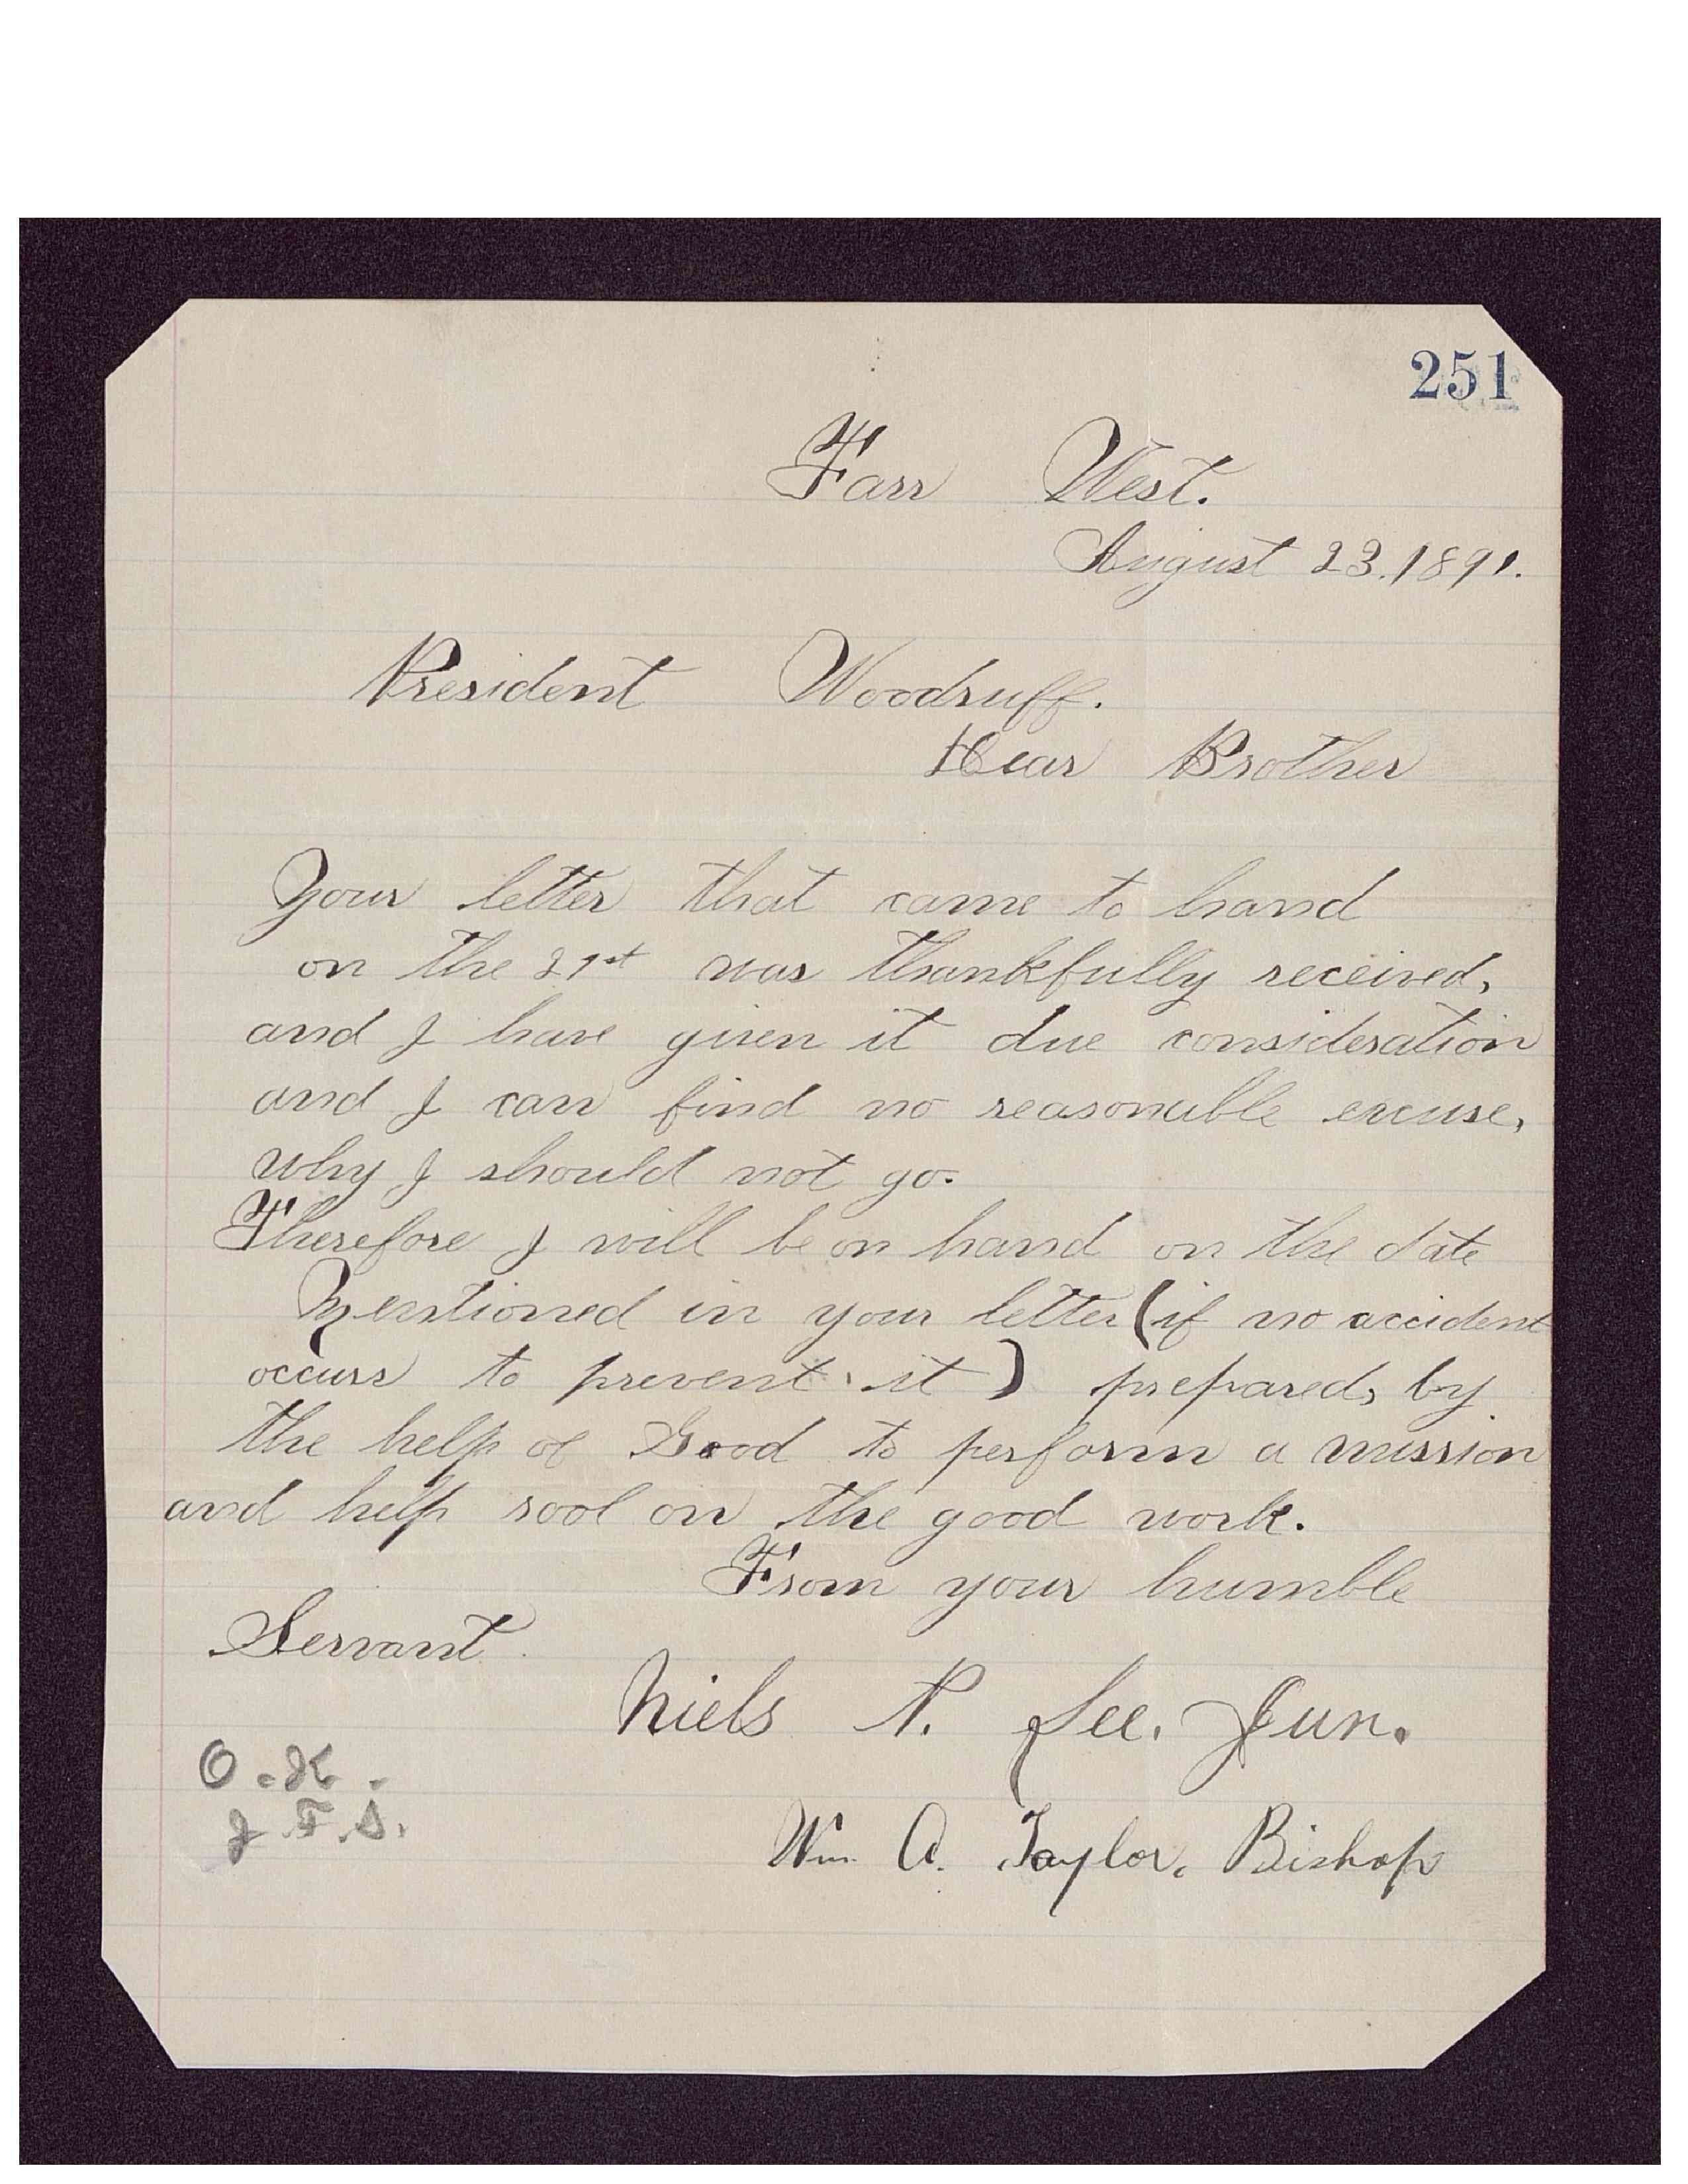 251
Farr West.
August 23. 1891.
President Woodruff.
Dear Brother
Your letter that came to hand
on the 21st was thankfully received,
and I have given it due consideration
and I can find no reasonable excuse,
why I should not go.
Therefore I will be on hand on the date
Mentioned in your letter (if no accident
occurs to prevent it) prepared, by
the help of Good to perform a mission
and help rool on the good work.
From your humble
Servant.
Niels P. Lee. Jun.
O.K.
J.F.S.
Wm. A. Taylor, Bishop